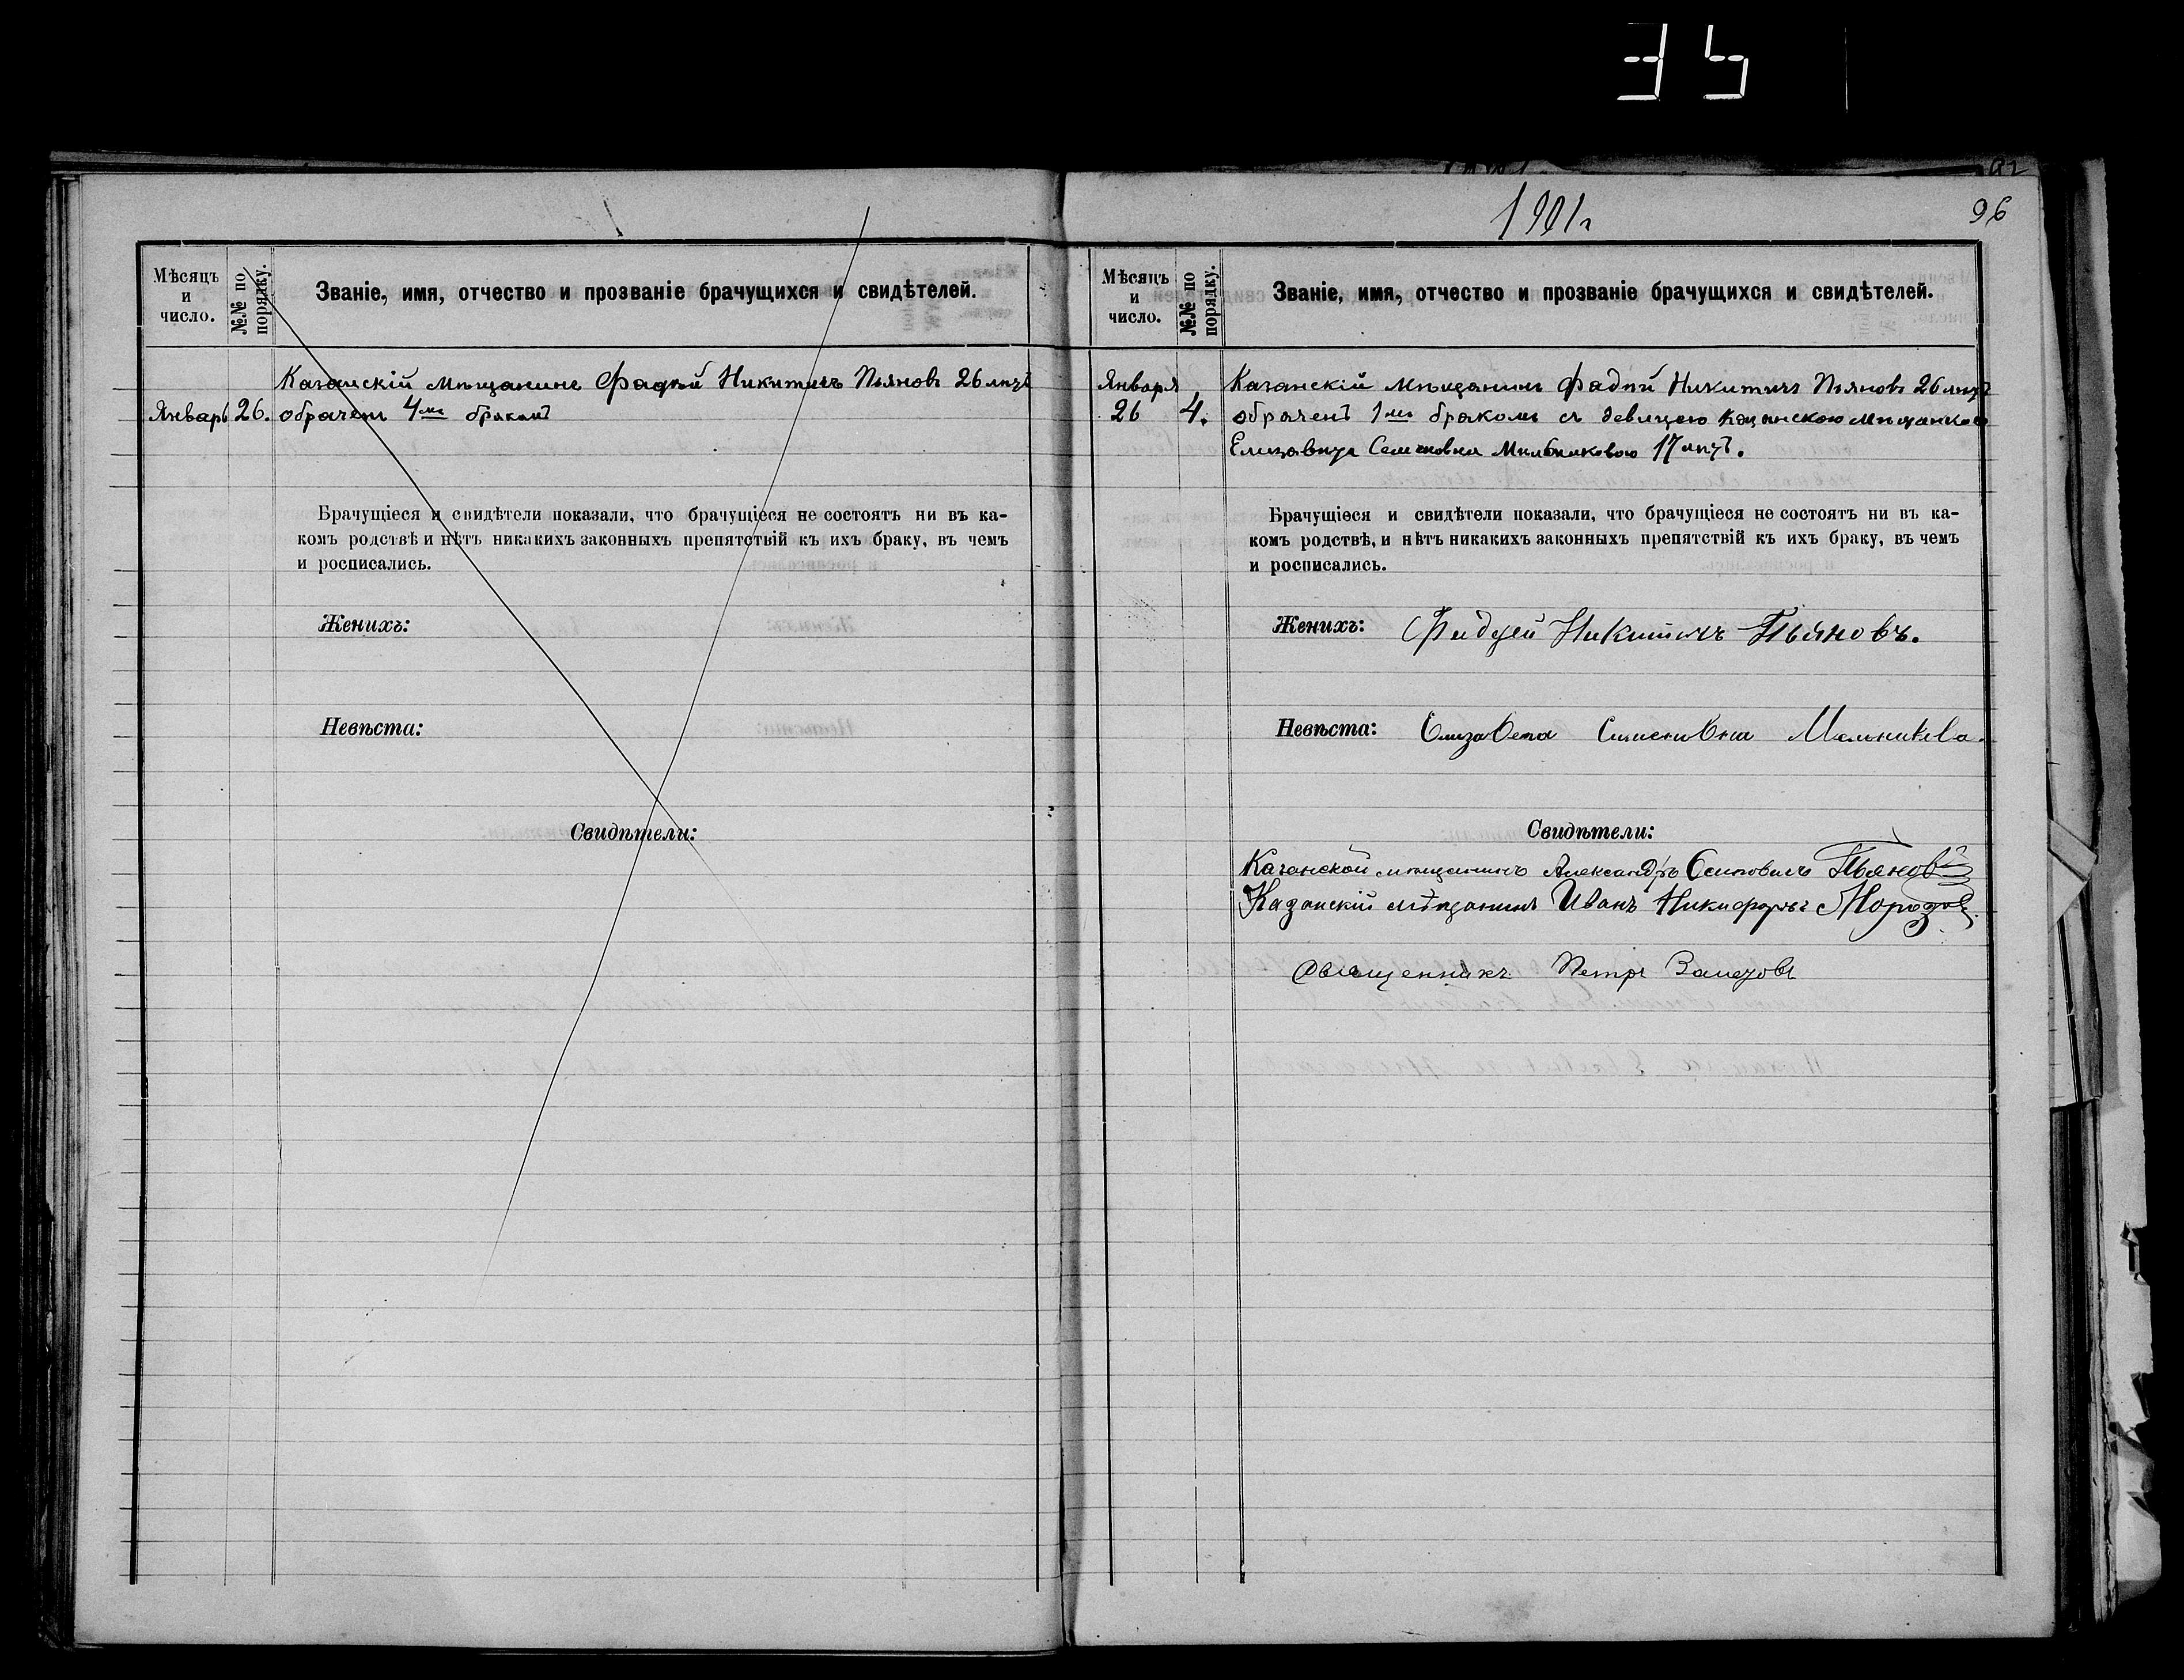 35
1901г
96
Мѣсяцъ
и
число.
№№ по
порядку.
Званіе, имя, отчество и прозваніе брачущихся и свидѣтелей.
Казанскій мѣщанинъ Фадѣй Никитичъ Пьяновъ 26 лѣтъ
Январь 26. обраченъ 4мъ бракомъ
Брачущіеся и свидѣтели показали, что брачущіеся не состоятъ ни въ ка-
комъ родствѣ и нѣтъ никакихъ законныхъ препятствій къ ихъ браку, въ чемъ
и росписались.
Женихъ:
Невѣста:
Свидѣтели:
Мѣсяцъ
и
число.
№№ по
порядку.
Званіе, имя, отчество и прозваніе брачущихся и свидѣтелей.
Января Казанскій мѣщанинъ Фадѣй Никитичъ Пьяновъ 26 лѣтъ
26 4. обраченъ 1мъ бракомъ съ девицею казанскою мѣщанкою
Елизавѣта Семеновна Мельниковою 17 лѣтъ.
Брачущіеся и свидѣтели показали, что брачущіеся не состоятъ ни въ ка-
комъ родствѣ, и нѣтъ никакихъ законныхъ препятствій къ ихъ браку, въ чемъ
и росписались.
Женихъ: Фадей Никитичъ Пьяновъ.
Невѣста: Елизавета Семеновна Мельникова.
Свидѣтели:
Казанской мѣщанинъ Александръ Осиповичъ Пьяновъ
Казанскій мѣщанинъ Иванъ Никифоръ Морозов
Священникъ Петръ